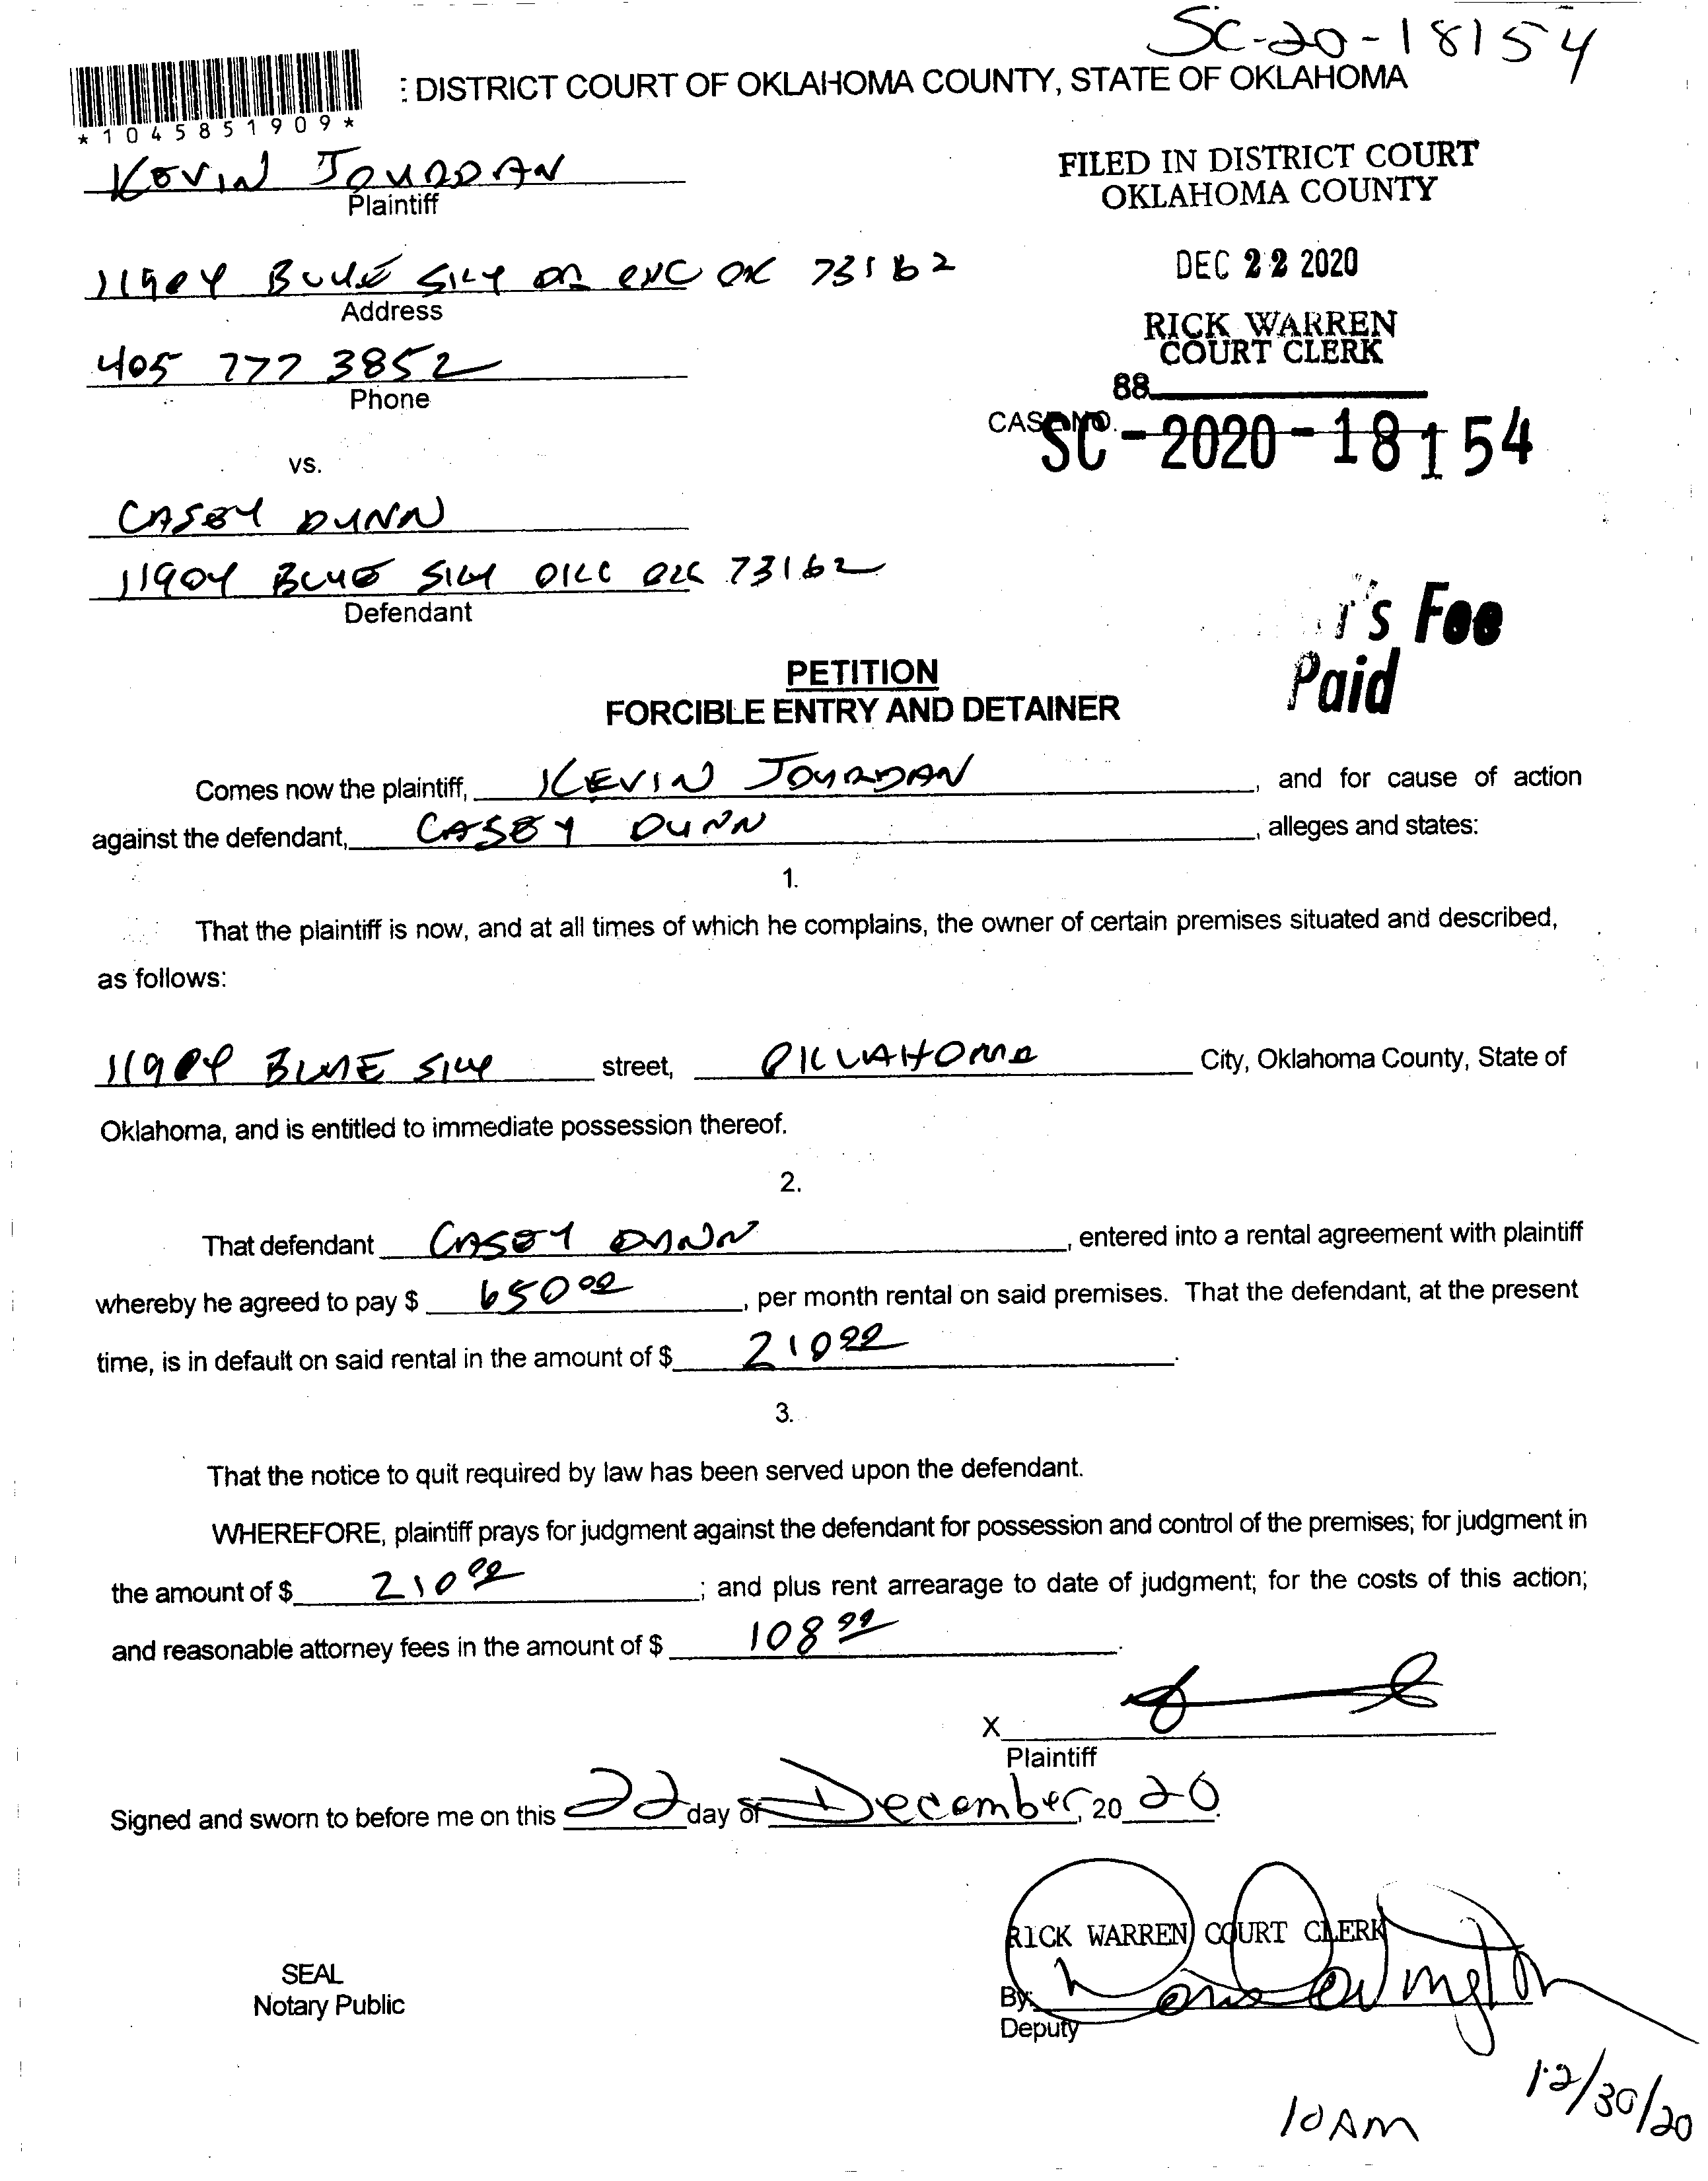 SC-20-18154
: DISTRICT COURT OF OKLAHOMA COUNTY, STATE OF OKLAHOMA
*1045851909*
KEVIN JOURDAN
Plaintiff
FILED IN DISTRICT COURT
OKLAHOMA COUNTY
11904 BLUE SKY DR OKC OK 73162
Address
DEC 22 2020
RICK WARREN
COURT CLERK
405 777 3852
Phone
88
CASE NO.
SC-2020-18154
vs.
CASEY DUNN
11904 BLUE SKY OKC OK 73162
Defendant
r's Fee
Paid
PETITION
FORCIBLE ENTRY AND DETAINER
Comes now the plaintiff, KEVIN JOURDAN, and for cause of action
against the defendant, CASEY DUNN, alleges and states:
1.
That the plaintiff is now, and at all times of which he complains, the owner of certain premises situated and described,
as follows:
11904 BLUE SKY street, OKLAHOMA City, Oklahoma County, State of
Oklahoma, and is entitled to immediate possession thereof.
2.
That defendant CASEY DUNN, entered into a rental agreement with plaintiff
whereby he agreed to pay $ 650 00, per month rental on said premises. That the defendant, at the present
time, is in default on said rental in the amount of $ 210 00.
3.
That the notice to quit required by law has been served upon the defendant.
WHEREFORE, plaintiff prays for judgment against the defendant for possession and control of the premises; for judgment in
the amount of $ 210 00; and plus rent arrearage to date of judgment; for the costs of this action;
and reasonable attorney fees in the amount of $ 108 00.
X
Plaintiff
Signed and sworn to before me on this 22 day of December, 20 20.
RICK WARREN COURT CLERK
SEAL
Notary Public
By:
Deputy
12/30/20
10 AM